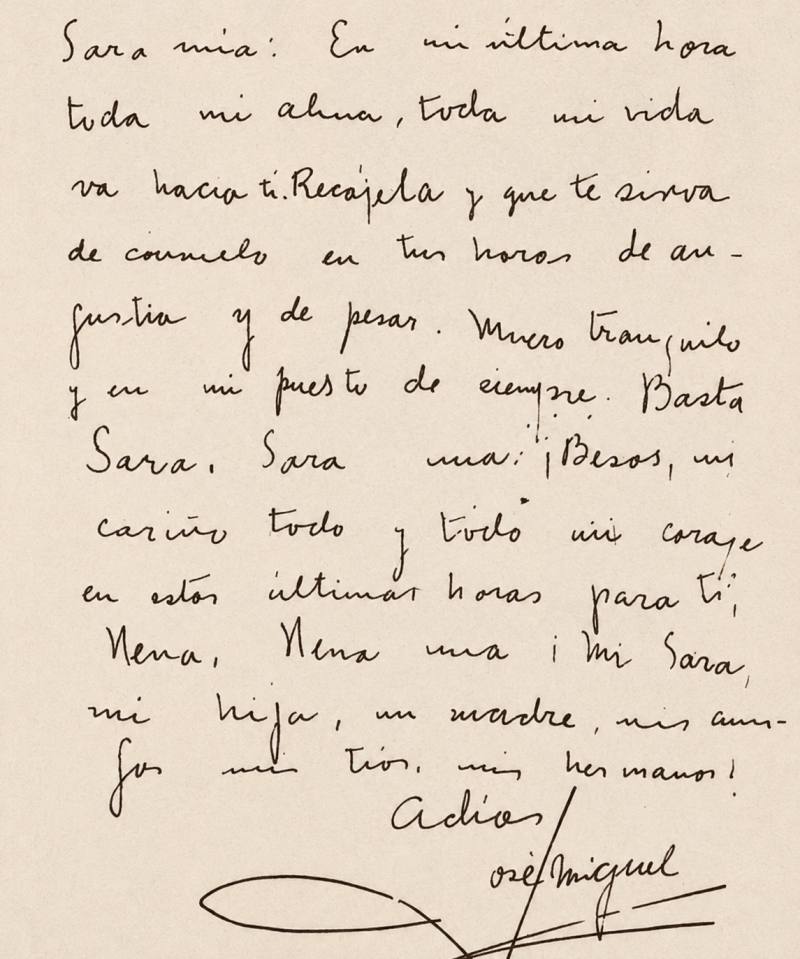 Sara mía: En mi última hora
toda mi alma, toda mi vida
va hacia ti. Recójela y que te sirva
de consuelo en tus horas de an-
gustia y de pesar. Muero tranquilo
y en mi puesto de siempre. Basta
Sara. Sara mia: ¡Besos, mi
cariño todo y todo mi coraje
en estas últimas horas para ti;
Nena, Nena mia ¡Mi Sara,
mi hija, mi madre, mis ami-
gos mis tios, mis hermanos!
Adios
José Miguel